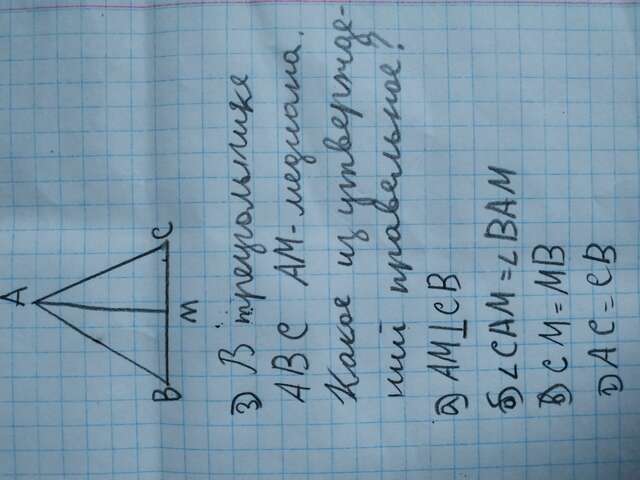 A
B
M
C
3) В треугольнике
ABC AM-медиана.
Какое из утвержде-
ний правельное?
а) AM⊥CB
б) ∠CAM=∠BAM
в) CM=MB
г) AC=CB